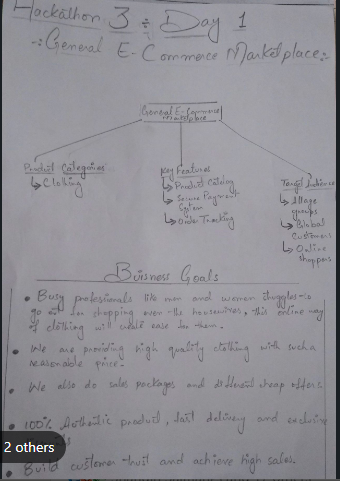 Hackathon 3 ÷ Day 1
-:General E-Commerce Marketplace:-
General E-Commerce
Marketplace
Product Categories
↳ Clothing
Key Features
↳ Product Catalog
↳ Secure Payment
System
↳ Order Tracking
Target Audience
↳ All age
groups
↳ Global
Customers
↳ Online
shoppers
Buisness Goals
• Busy profesionals like men and women struggles to
go for shopping over the housewives, this online way
of clothing will create ease for them.
• We are providing high quality clothing with such a
reasonable price.
• We also do sales packages and different cheap offers.
• 100% Authentic product, fast delivery and exclusive
2 others
• Build customer trust and achieve high sales.